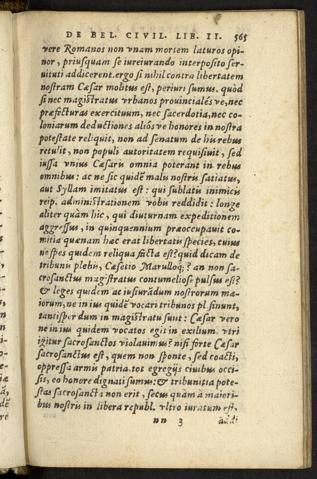 DE BEL. CIVIL. LIB. II. 565
vere Romanos non vnam mortem laturos opi
nor, priusquam se iureiurando interposito ser-
uituti addicerent. ergo si nihil contra libertatem
nostram Cæsar molitus est, periuri sumus. quòd
si nec magistratus vrbanos prouincialés ve, nec
præfecturas exercituum, nec sacerdotia, nec co-
loniarum deductiones aliós ve honores in nostra
potestate reliquit, non ad senatum de his rebus
retulit, non populi autoritatem requisiuit, sed
iussa vnius Cæsaris omnia poterant in rebus
omnibus: ac ne sic quidē malis nostris satiatus,
aut Syllam imitatus est: qui sublatis inimicis
reip. administrationem vobis reddidit: longe
aliter quàm hic, qui diuturnam expeditionem
aggressus, in quinquennium præoccupauit co-
mitia quænam hæc erat libertatis species, cuius
ne spes quidem reliqua facta est? quid dicam de
tribunis plebis, Cæsetio Marulloq;? an non sa-
crosanctus magistratus contumeliose pulsus est?
& leges quidem ac iusiurādum nostrorum ma-
iorum, ne in ius quidē vocari tribunos pl. sinunt,
tantisper dum in magistratu sunt: Cæsar vero
ne in ius quidem vocatos egit in exilium. vtri
igitur sacrosanctos violauimus? nisi forte Cæsar
sacrosanctus est, quem non sponte, sed coacti,
oppressa armis patria. tot egregijs ciuibus occi-
sis, eo honore dignati sumus: & tribunitia pote-
stas sacrosancta non erit, secus quàm à maiori-
bus nostris in libera republ. vltro iuratum est,
nn 3 audi